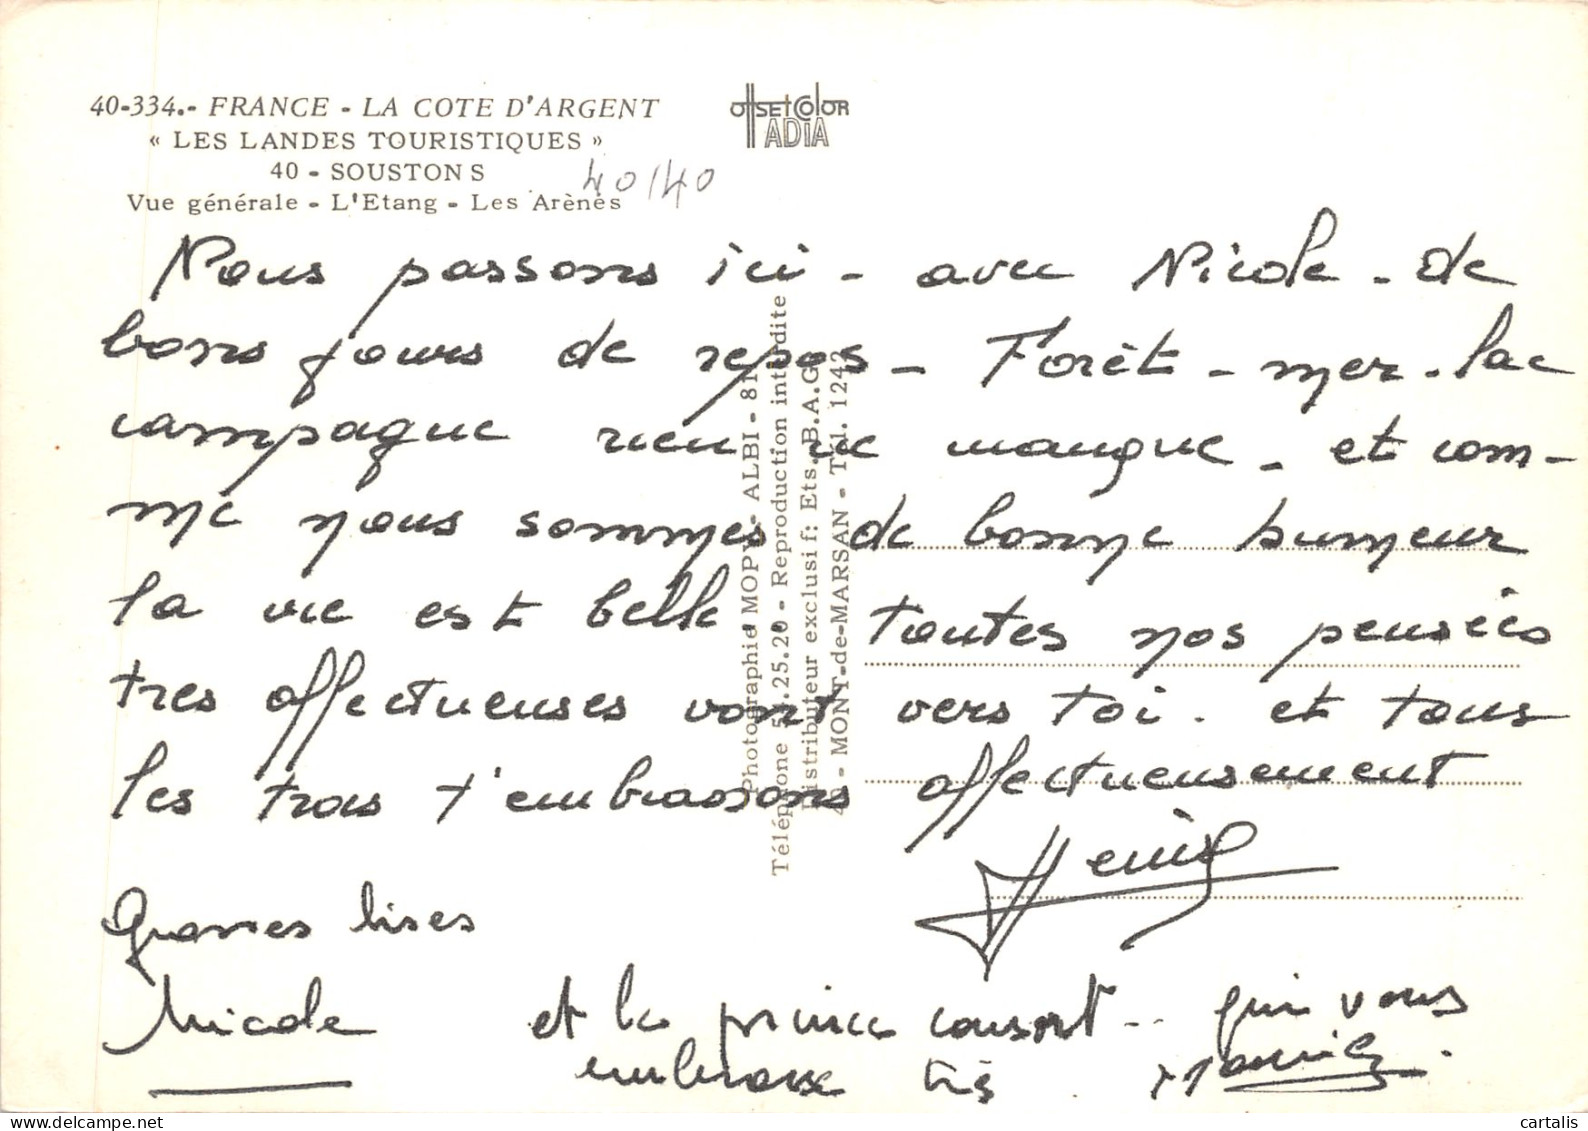 40-334.- FRANCE - LA COTE D'ARGENT
« LES LANDES TOURISTIQUES »
40 - SOUSTONS
Vue générale - L'Etang - Les Arènes
40/40
OffsetColor
ADIA
Nous passons ici - avec Nicole - de
bons jours de repos - Forêt - mer - lac
campagne rien ne manque - et com-
me nous sommes de bonne humeur
la vie est belle. Toutes nos pensées
très affectueuses vont vers toi. et tous
les trois t'embrassons affectueusement
Grosses bises
Nicole et le prince consort... qui vous
embrasse très
Photographie MOPY - ALBI - 81
Téléphone 54.25.20 - Reproduction interdite
Distributeur exclusif: Ets. B.A.G.
40 - MONT-de-MARSAN - Tél. 1242
cartalis